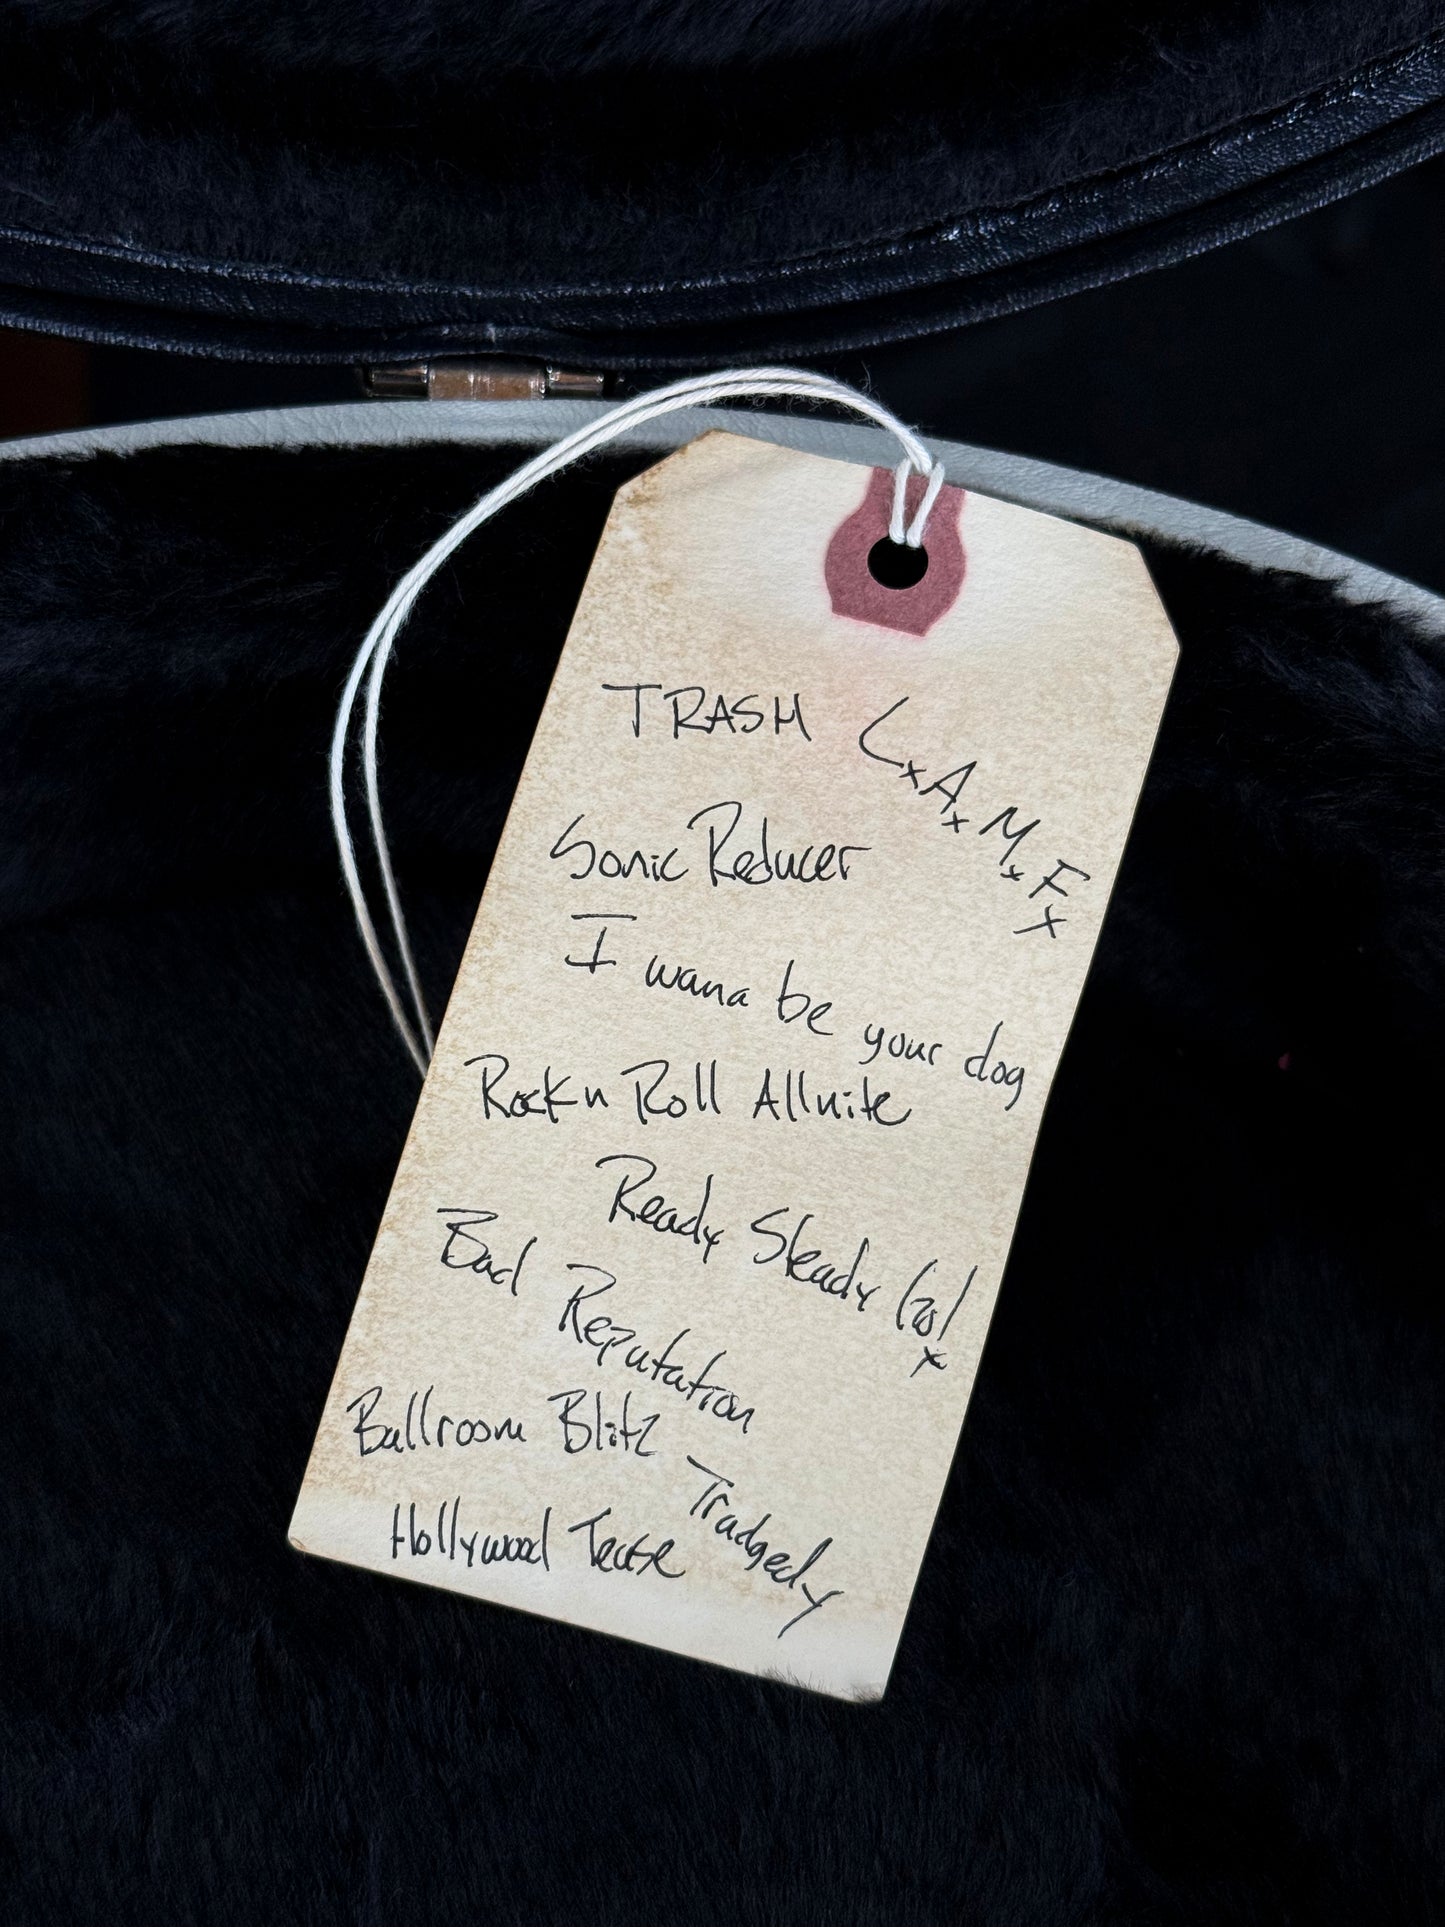 TRASH
C.A.M.F.
Sonic Reducer
I wana be your dog
Rock n Roll Allnite
Ready Steady Go!
Bad Reputation
Ballroom Blitz
Tradgedy
Hollywood Tease